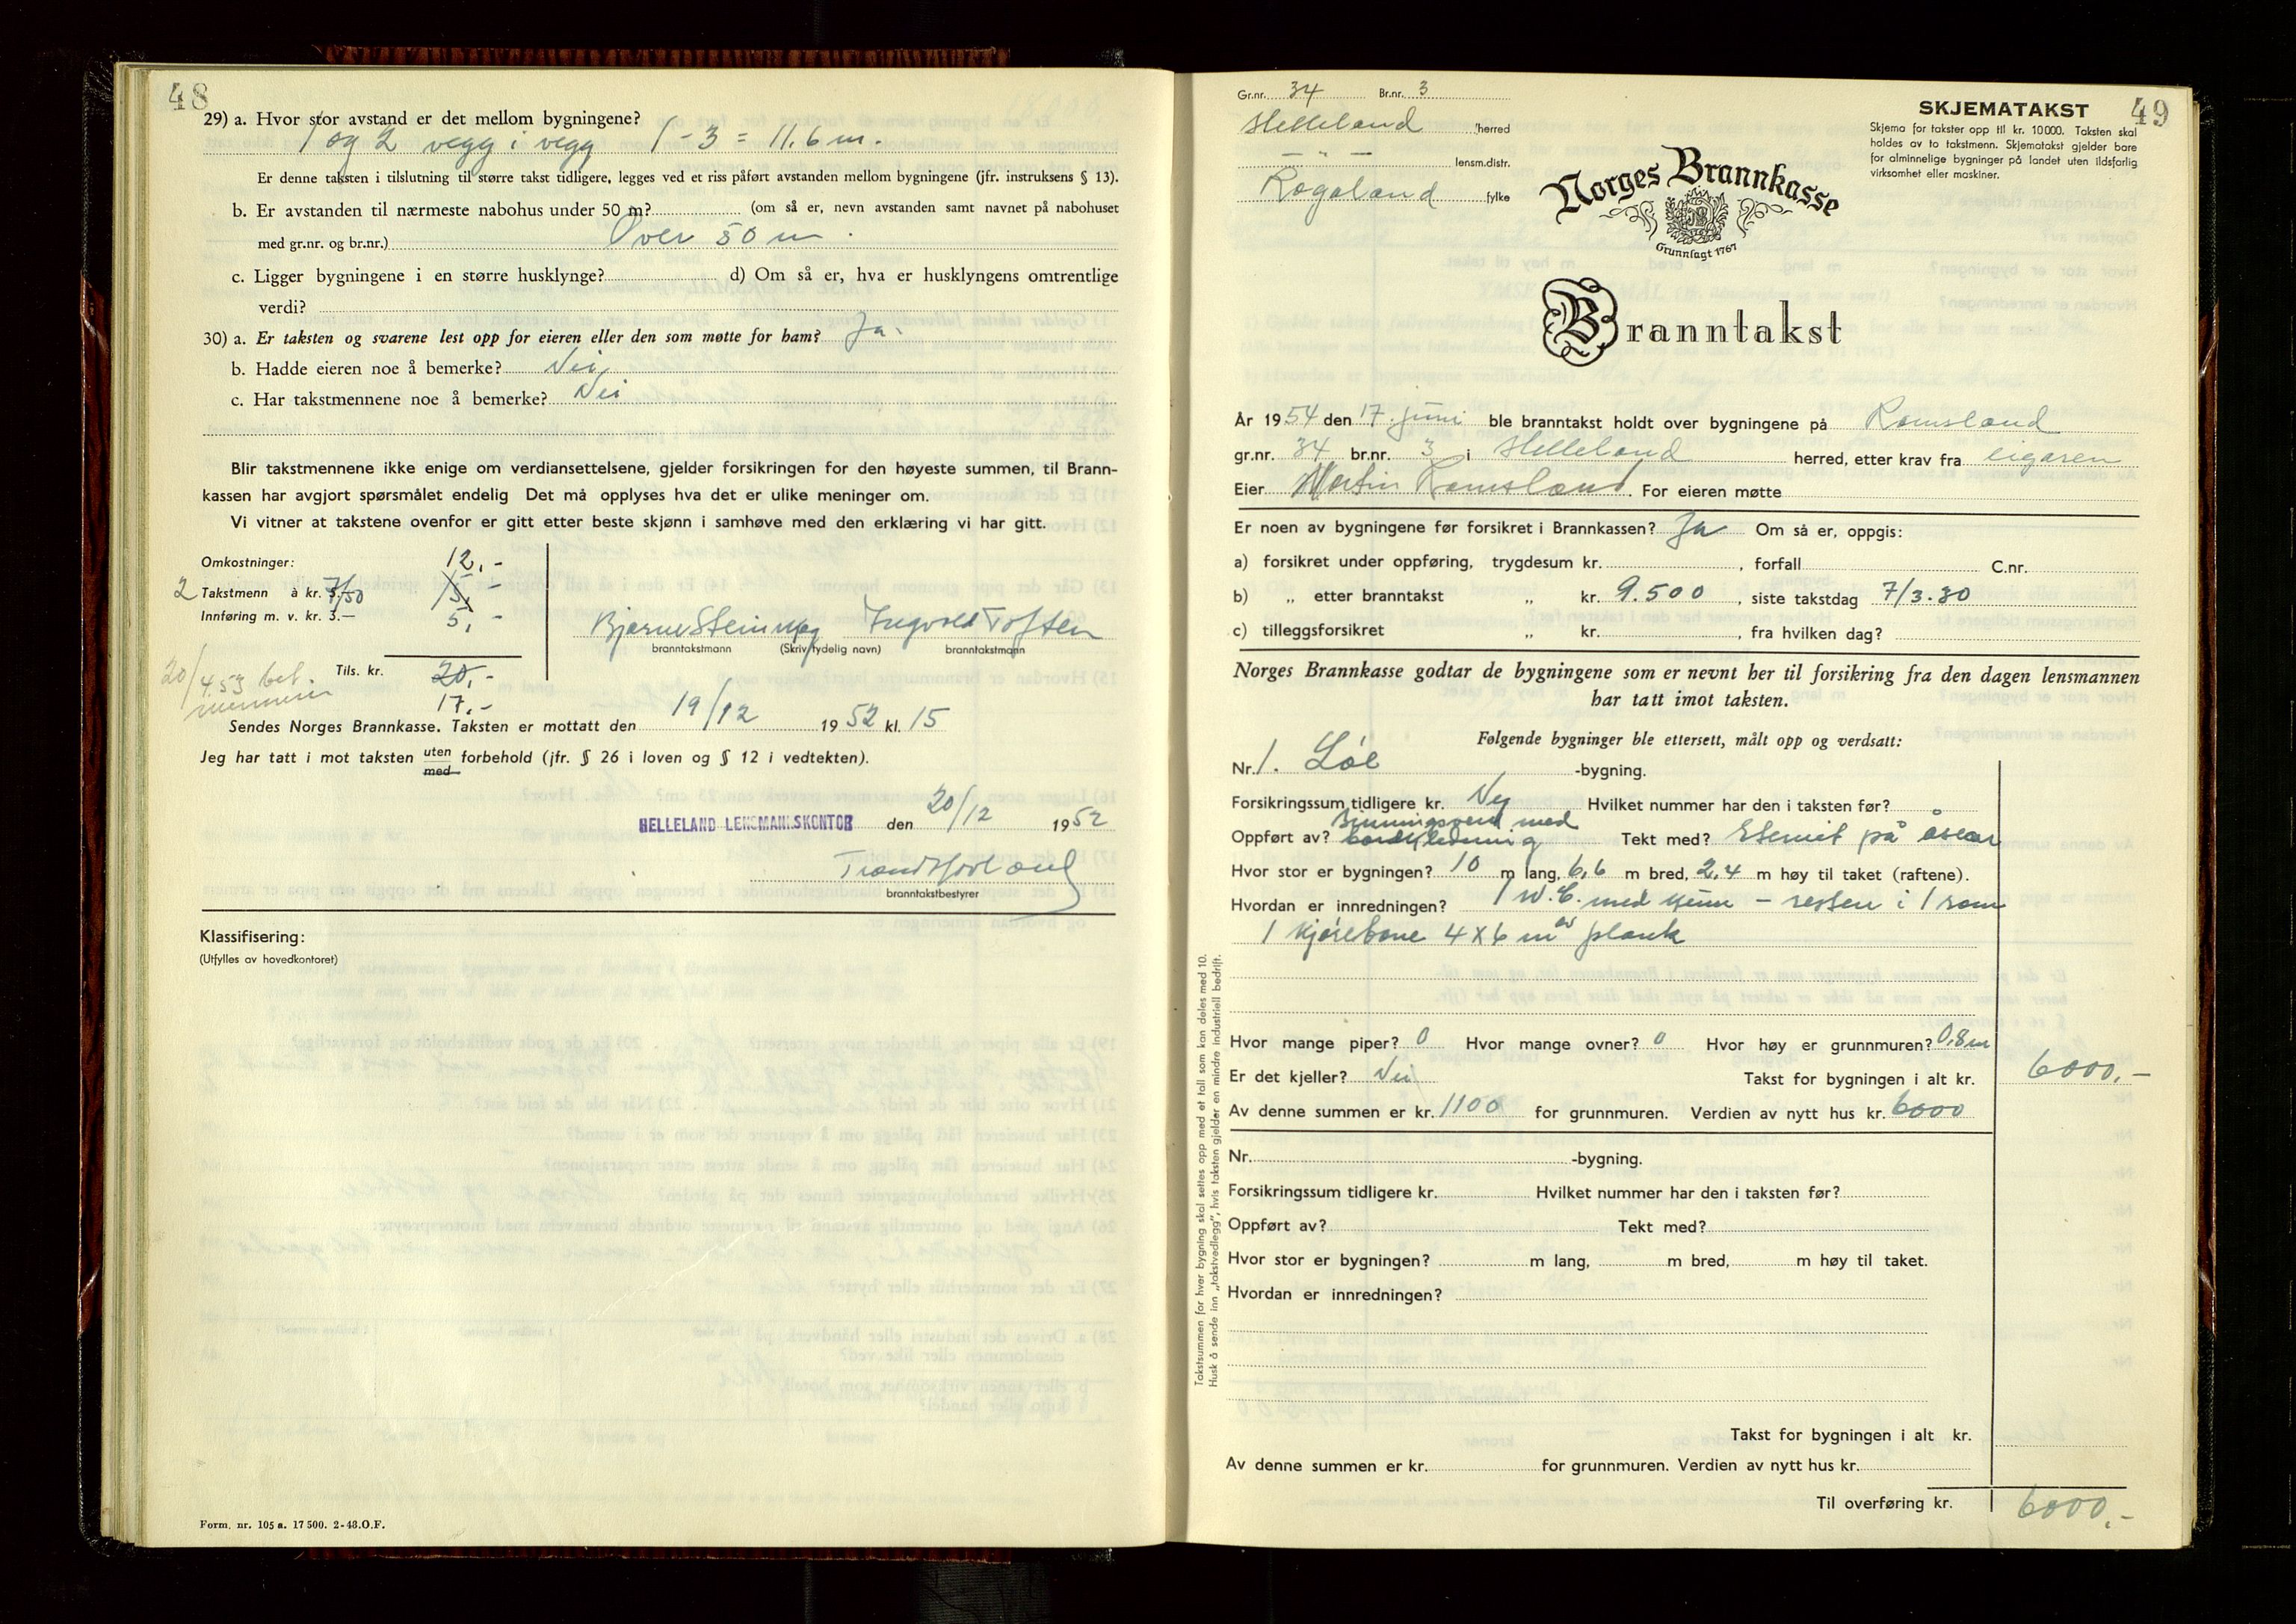 48
29) a. Hvor stor avstand er det mellom bygningene?
1 og 2 vegg i vegg 1 - 3 = 11.6 m.
Er denne taksten i tilslutning til større takst tidligere, legges ved et riss påført avstanden mellom bygningene (jfr. instruksens § 13).
b. Er avstanden til nærmeste nabohus under 50 m? (om så er, nevn avstanden samt navnet på nabohuset
med gr.nr. og br.nr.) Over 50 m.
c. Ligger bygningene i en større husklynge? d) Om så er, hva er husklyngens omtrentlige
verdi?
30) a. Er taksten og svarene lest opp for eieren eller den som møtte for ham? Ja.
b. Hadde eieren noe å bemerke? Nei
c. Har takstmennene noe å bemerke? Nei
Blir takstmennene ikke enige om verdiansettelsene, gjelder forsikringen for den høyeste summen, til Brann-
kassen har avgjort spørsmålet endelig Det må opplyses hva det er ulike meninger om.
Vi vitner at takstene ovenfor er gitt etter beste skjønn i samhøve med den erklæring vi har gitt.
Omkostninger: 12,-
2 Takstmenn à kr. 7/50 15,-
Innføring m. v. kr. 3.— 5,-
Ingvald Toften
branntakstmann (Skriv tydelig navn) branntakstmann
20/4.53 bet.
Tils. kr. 20,-
17,-
Sendes Norges Brannkasse. Taksten er mottatt den 19/12 1952 kl. 15
Jeg har tatt i mot taksten uten med forbehold (jfr. § 26 i loven og § 12 i vedtekten).
HELLELAND LENSMANNSKONTOR den 20/12 1952
branntakstbestyrer
Klassifisering:
(Utfylles av hovedkontoret)
Form. nr. 105 a. 17 500. 2-48. O.F.
49
Gr.nr. 34 Br.nr. 3
Helleland herred
— " — lensm.distr.
Rogaland fylke
SKJEMATAKST
Skjema for takster opp til kr. 10000. Taksten skal
holdes av to takstmenn. Skjematakst gjelder bare
for alminnelige bygninger på landet uten ildsfarlig
virksomhet eller maskiner.
Norges Brannkasse
Grunnlagt 1767
Branntakst
År 1954 den 17. juni ble branntakst holdt over bygningene på Ramsland
gr.nr. 34 br.nr. 3 i Helleland herred, etter krav fra eigaren
Eier Martin Ramsland. For eieren møtte
Er noen av bygningene før forsikret i Brannkassen? Ja Om så er, oppgis:
a) forsikret under oppføring, trygdesum kr. , forfall C.nr.
b) „ etter branntakst „ kr. 9.500, siste takstdag 7/3.30
c) tilleggsforsikret „ kr. , fra hvilken dag?
Norges Brannkasse godtar de bygningene som er nevnt her til forsikring fra den dagen lensmannen
har tatt imot taksten.
Følgende bygninger ble ettersett, målt opp og verdsatt:
Nr. 1. Løe -bygning.
Forsikringssum tidligere kr. Ny Hvilket nummer har den i taksten før?
Binningsverk med
Oppført av? bordkledning Tekt med? Eternit på åser
Hvor stor er bygningen? 10 m lang, 6,6 m bred, 2,4 m høy til taket (raftene).
Hvordan er innredningen? 1 W.C. med kum – resten i 1 rom
1 kjørebane 4 x 6 m av plank
Hvor mange piper? 0 Hvor mange ovner? 0 Hvor høy er grunnmuren? 0,8 m
Er det kjeller? Nei Takst for bygningen i alt kr. 6000,-
Av denne summen er kr. 1100 for grunnmuren. Verdien av nytt hus kr. 6000
Nr. -bygning.
Forsikringssum tidligere kr. Hvilket nummer har den i taksten før?
Oppført av? Tekt med?
Hvor stor er bygningen? m lang, m bred, m høy til taket.
Hvordan er innredningen?
Takst for bygningen i alt kr.
Av denne summen er kr. for grunnmuren. Verdien av nytt hus kr.
Til overføring kr. 6000,-
Takstsummen for hver bygning skal settes opp med et tall som kan deles med 10.
Husk å sende inn „takstvedlegg", hvis taksten gjelder en mindre industriell bedrift.